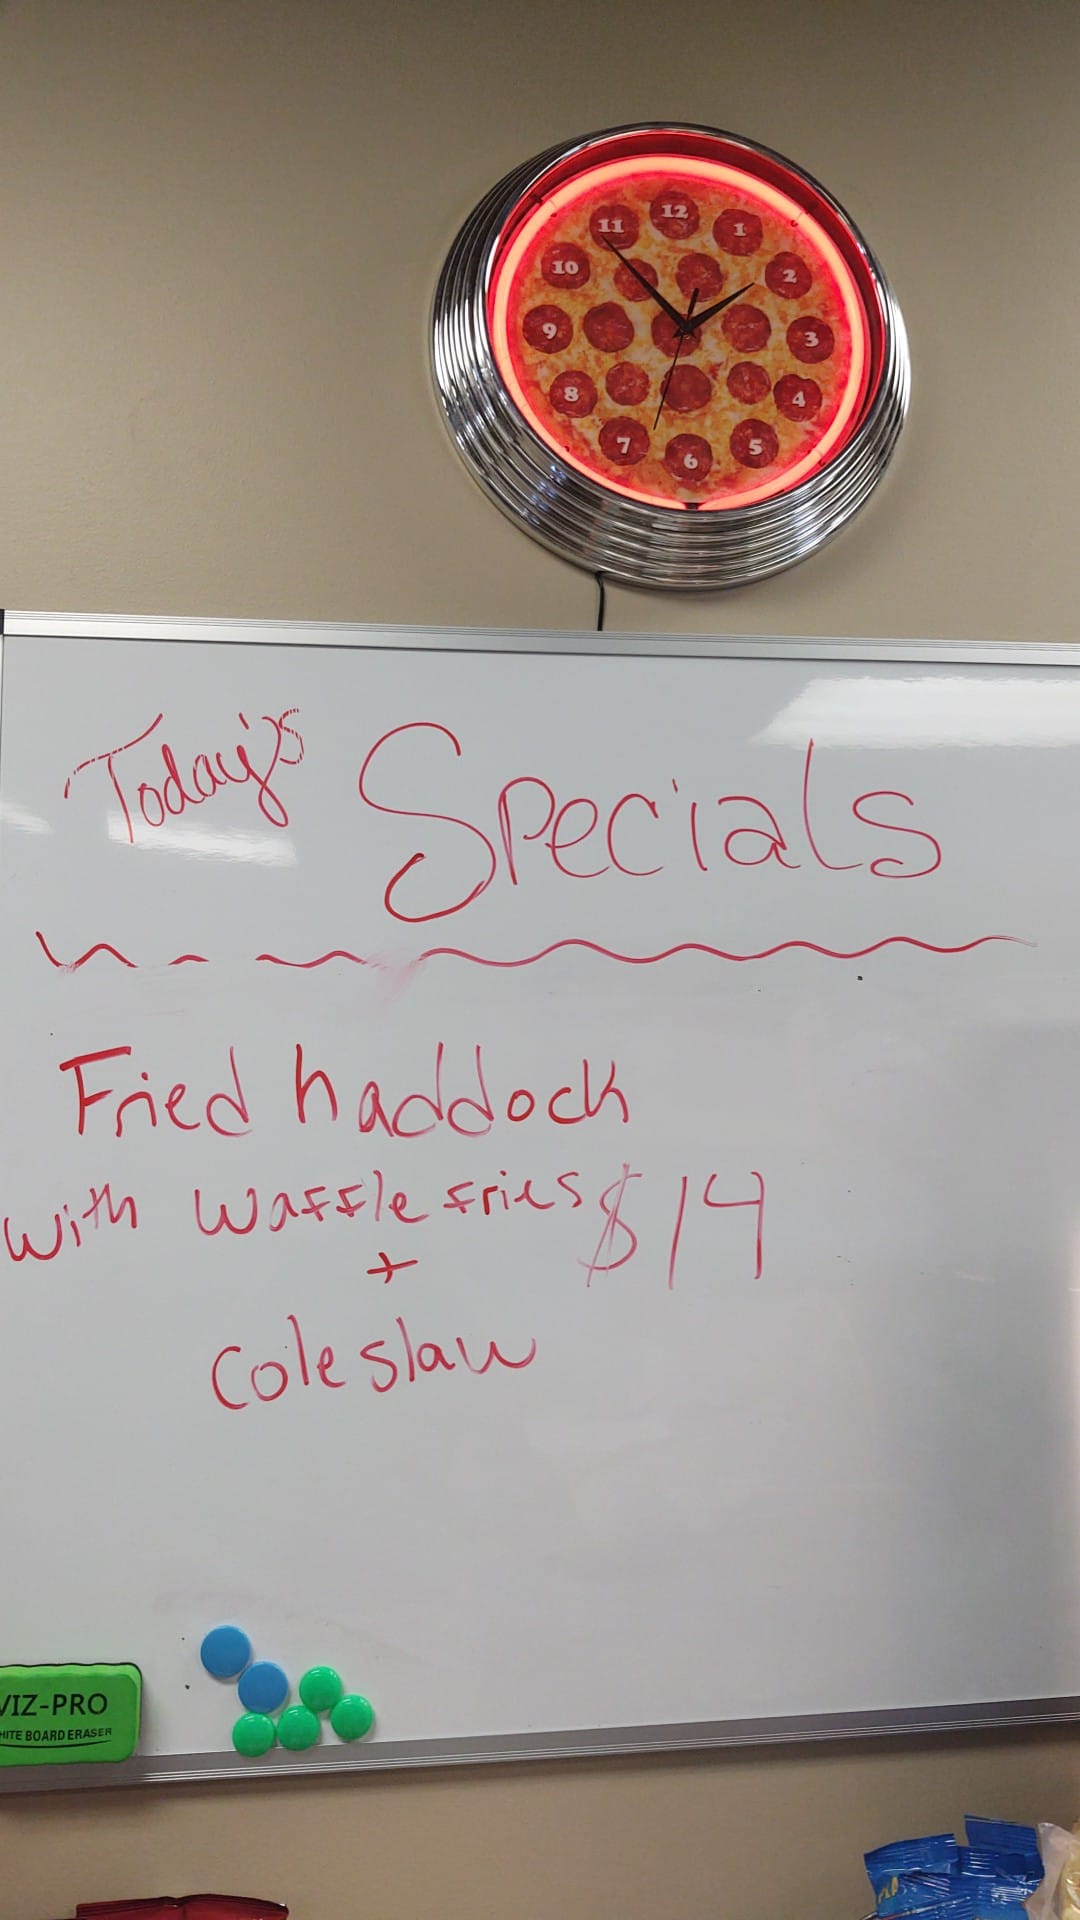 12
11
1
10
2
9
3
8
4
7
5
6
Today's Specials
Fried haddock
with waffle fries $14
+
Coleslaw
VIZ-PRO
HITE BOARD ERASER